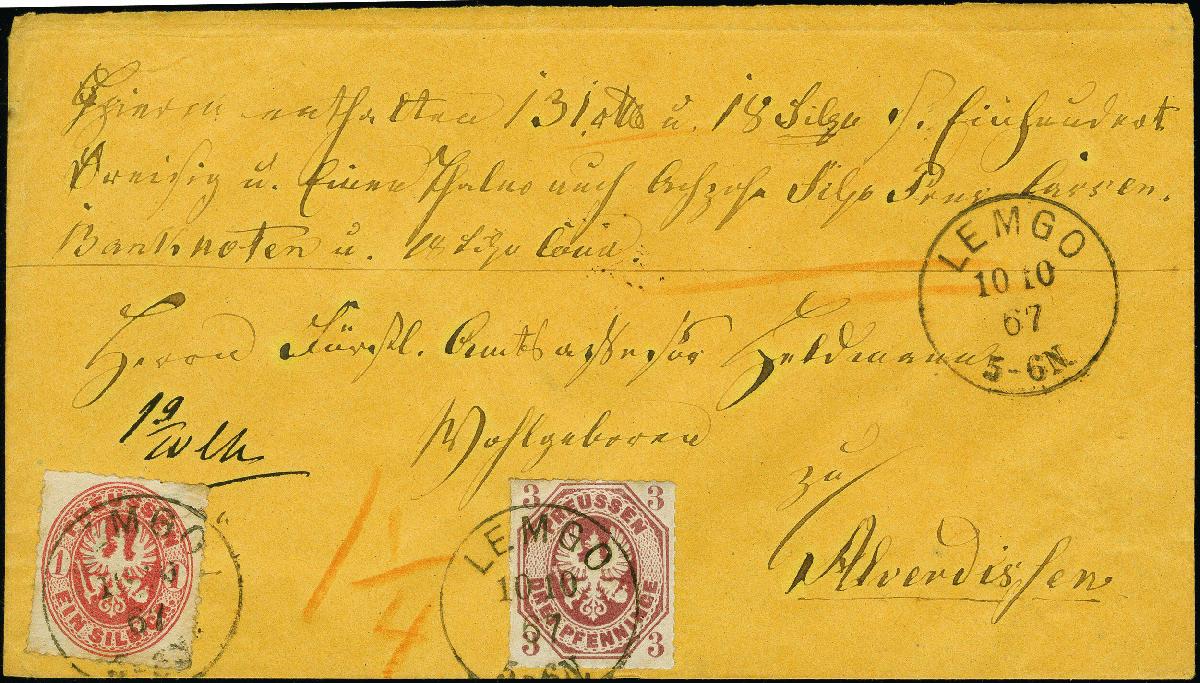 Hierin enthalten 131 u. 18 Silgr Einhundert
Dreißig u. Einen Thaler auch Achzehn Silgr Preus. Cassen.
Banknoten u. 18 Silgr
LEMGO
10 10
67
5-6N.
Herrn Fürstl. Amtsassessor Heldmann
Wohlgeboren
zu
Alverdissen
1 1/4
PREUSSEN
1
EIN SILBERGR.
LEMGO
67
3 3
PREUSSEN
DREI PFENNINGE
3 3
LEMGO
10 10
67
5-6N.